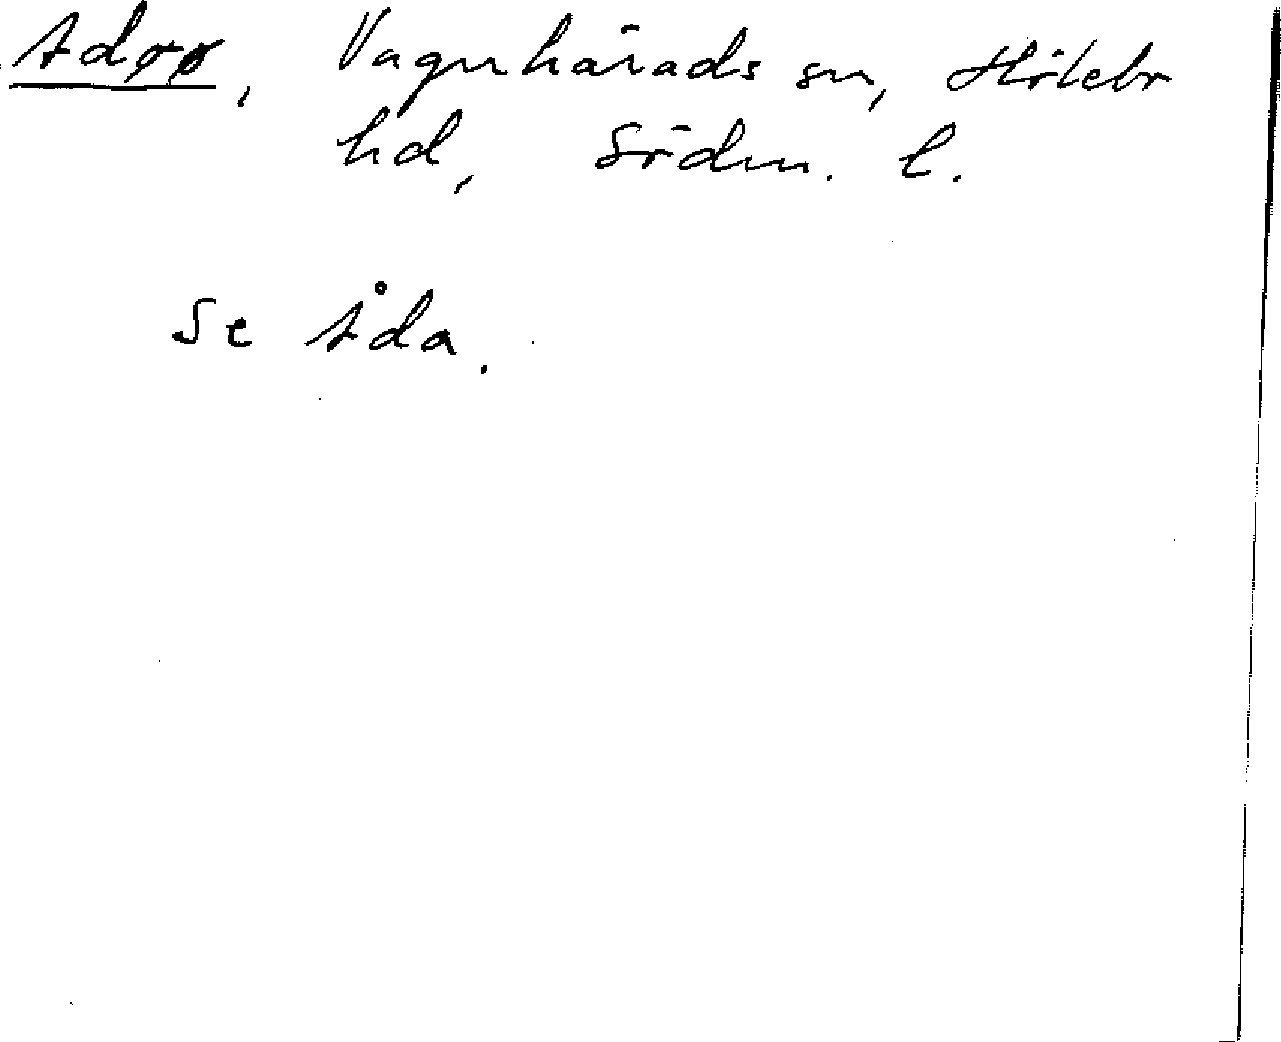 Adøø, Vagnhärads sn, Hölebo
hd, Södm. l.
Se Åda.